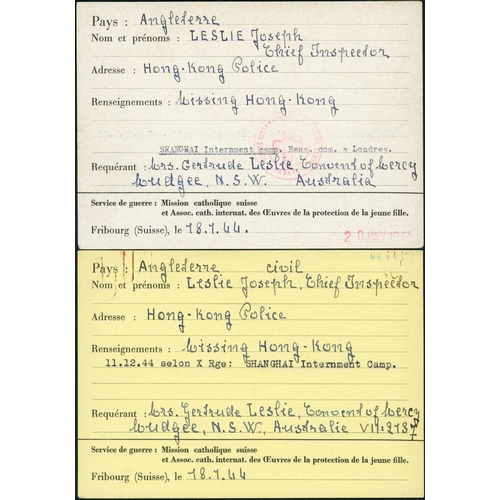 Pays : Angleterre
Nom et prénoms : LESLIE Joseph
Chief Inspector
Adresse : Hong-Kong Police
Renseignements : Missing Hong-Kong
SHANGHAI Internment camp. Rens. com. a Londres.
Requérant : Mrs. Gertrude Leslie, Convent of Mercy
Mudgee, N.S.W. Australia
Service de guerre : Mission catholique suisse
et Assoc. cath. internat. des Œuvres de la protection de la jeune fille.
Fribourg (Suisse), le 18.1.44.
Pays : Angleterre civil
Nom et prénoms : Leslie Joseph, Chief Inspector
Adresse : Hong-Kong Police
Renseignements : Missing Hong-Kong
11.12.44 selon X Rge: SHANGHAI Internment Camp.
Requérant : Mrs. Gertrude Leslie, Convent of Mercy
Mudgee, N.S.W., Australia VII=2787
Service de guerre : Mission catholique suisse
et Assoc. cath. internat. des Œuvres de la protection de la jeune fille.
Fribourg (Suisse), le 18.1.44